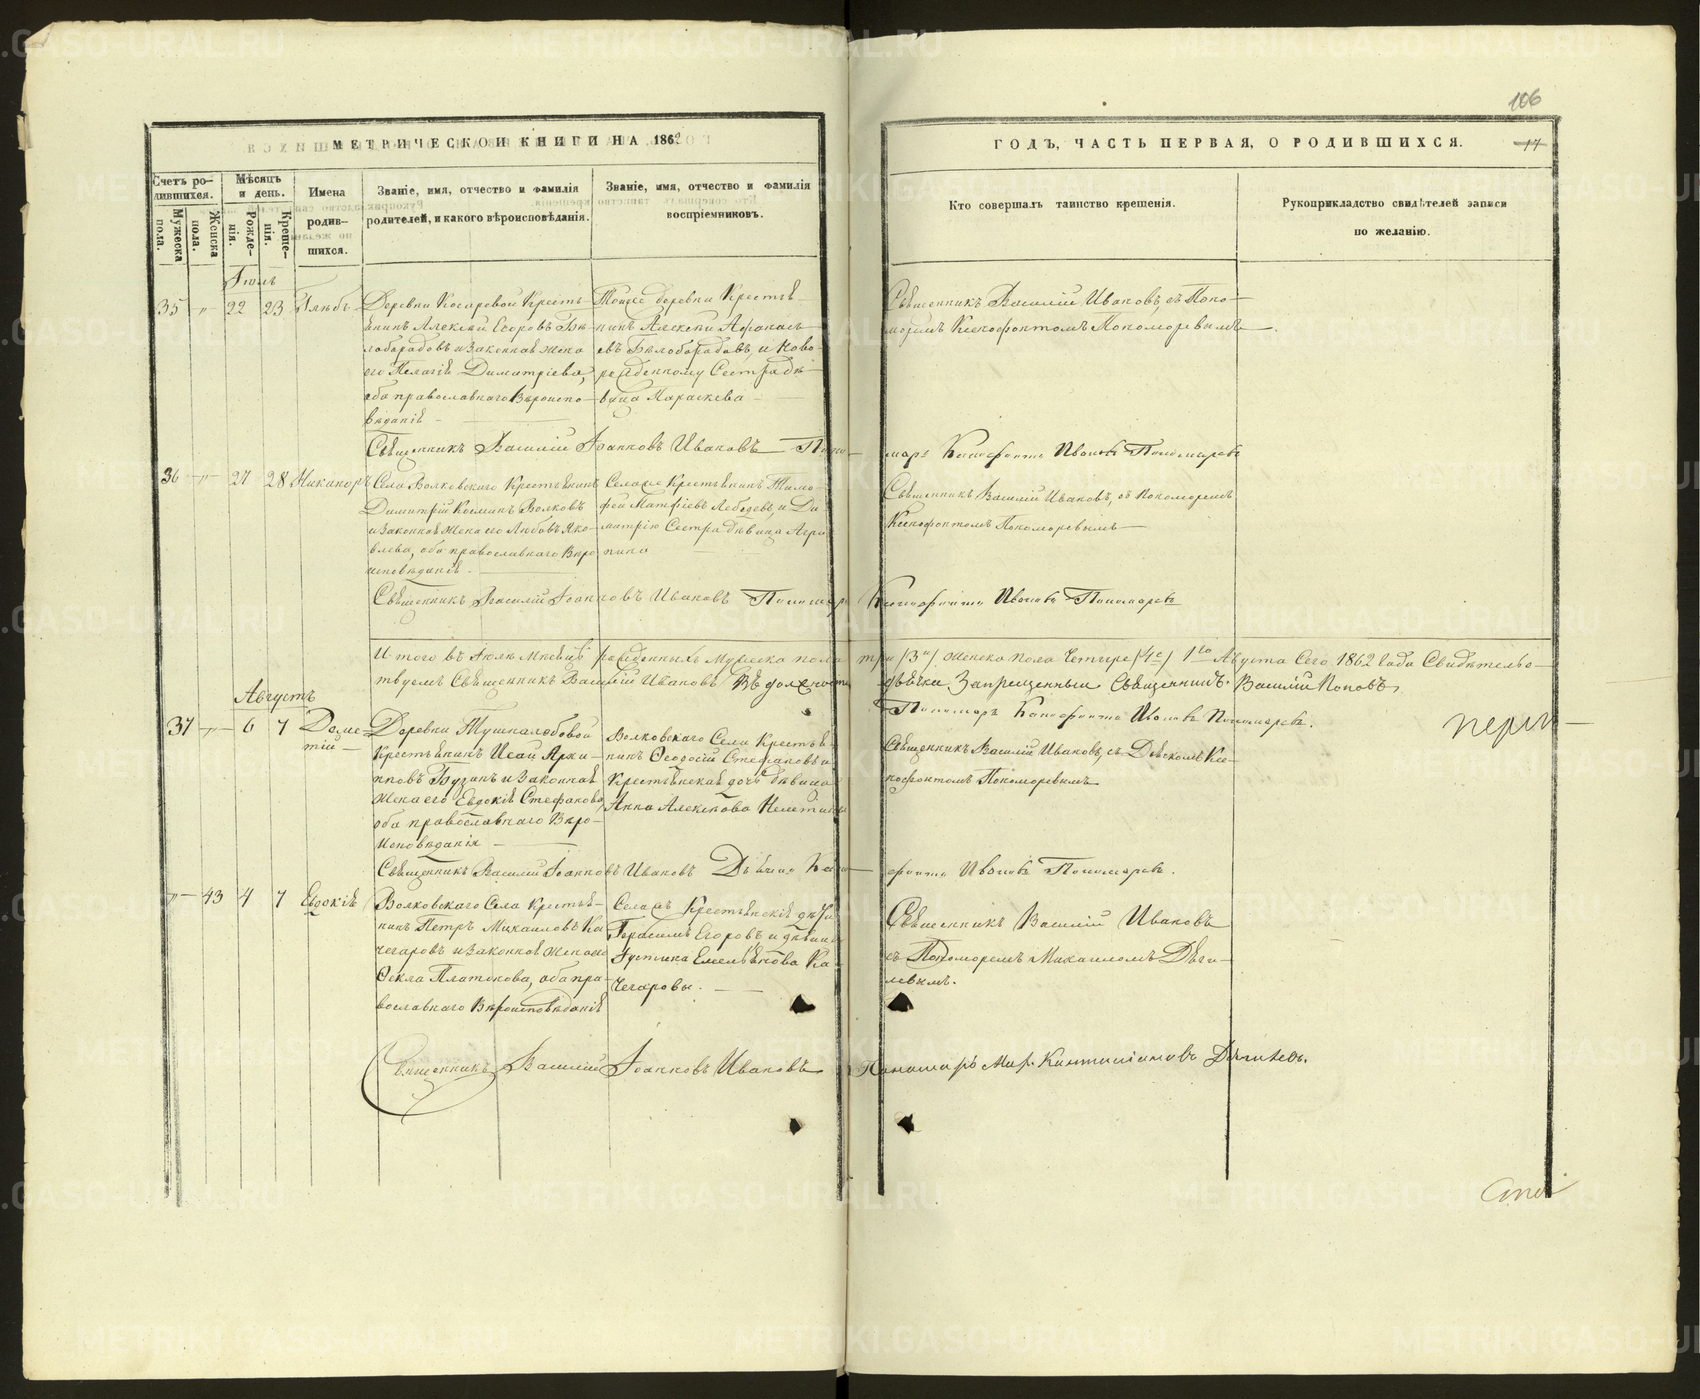 106
МЕТРИЧЕСКОЙ КНИГИ НА 1862
ГОДЪ, ЧАСТЬ ПЕРВАЯ, О РОДИВШИХСЯ.
17
Счетъ ро-
дившихся.
Мужеска пола.
Женска пола.
Мѣсяцъ
и день.
Рожде-
нія.
Креще-
нія.
Имена
родив-
шихся.
Званіе, имя, отчество и фамилія
родителей, и какого вѣроисповѣданія.
Званіе, имя, отчество и фамилія
воспріемниковъ.
Кто совершалъ таинство крещенія.
Рукоприкладство свидѣтелей записи
по желанію.
Іюль
35 " 22 23 Глѣбъ
Деревни Косаревой Кресть-
янинъ Алексей Егоровъ Бѣ-
лобородовъ и Законная жена
его Пелагія Димитріева,
оба православнаго Вѣроиспо-
вѣданія
Тойже деревни Крестья-
нинъ Алексѣй Афанась-
евъ Бѣлобородовъ, и Ново-
рожденному Сестра дѣ-
вица Параскева
Священникъ Василій Ивановъ, съ Поно-
маремъ Ксенофонтомъ Пономоревымъ
Священникъ Василій Іоанновъ Ивановъ Поно-
марь Ксенофонтъ Ивановъ Пономаревъ
36 " 27 28 Никаноръ
Села Волковскаго Крестьянинъ
Димитрій Козминъ Волковъ
и Законная жена его Любовь Яко-
влева, оба православнаго Вѣро
исповѣданія.
Села се Крестьянинъ Тимо-
фей Матфіевъ Лебедевъ, и Ди
митрію Сестра дѣвица Агри
пина
Священникъ Василій Ивановъ, съ Пономоремъ
Ксенофонтомъ Пономоревымъ
Священникъ Василій Іоанновъ Ивановъ Пономарь Ксенофонтъ Ивановъ Пономаревъ
И того въ Іюлѣ Мѣсяцѣ рожденныхъ Мужеска пола три /3и/ женска пола Четыре /4е/ 1го Августа Сего 1862 года Свидѣтельс-
твуемъ Священникъ Василій Ивановъ Въ должности дьячка Запрещенный Священникъ Василій Поповъ
Пономарь Ксенофонтъ Ивановъ Пономаревъ.
Августъ
37 " 6 7 Доме-
тій
Деревни Тушналобовой
Крестьянинъ Исай Архи-
повъ Бузанъ и Законная
жена его Евдокія Стефанова,
оба православнаго Вѣро-
исповѣданія
Волковскаго Села Крестья-
нинъ Ѳеодосій Стефановъ и
Крестьянская дочь дѣвица
Анна Алексѣева
Священникъ Василій Ивановъ, съ Дьячкомъ Ксе-
нофонтомъ Пономоревымъ
Священникъ Василій Іоанновъ Ивановъ Дьячекъ Ксено-
фонтъ Ивановъ Пономаревъ.
" 43 4 7 Евдокія
Волковскаго Села Крестья-
нинъ Петръ Михаиловъ Ка
чегаровъ и Законная жена его
Ѳекла Платонова, оба пра-
вославнаго Вѣроисповѣданія
Села съ Крестьянскія дѣти
Герасимъ Егоровъ и дѣвица
Іустина Емельянова Ка-
чегаровы.
Священникъ Василій Ивановъ
съ Пономоремъ Михаиломъ Дяги-
левымъ.
Священникъ Василій Іоанновъ Ивановъ Пономарь Мих. Дягилевъ.